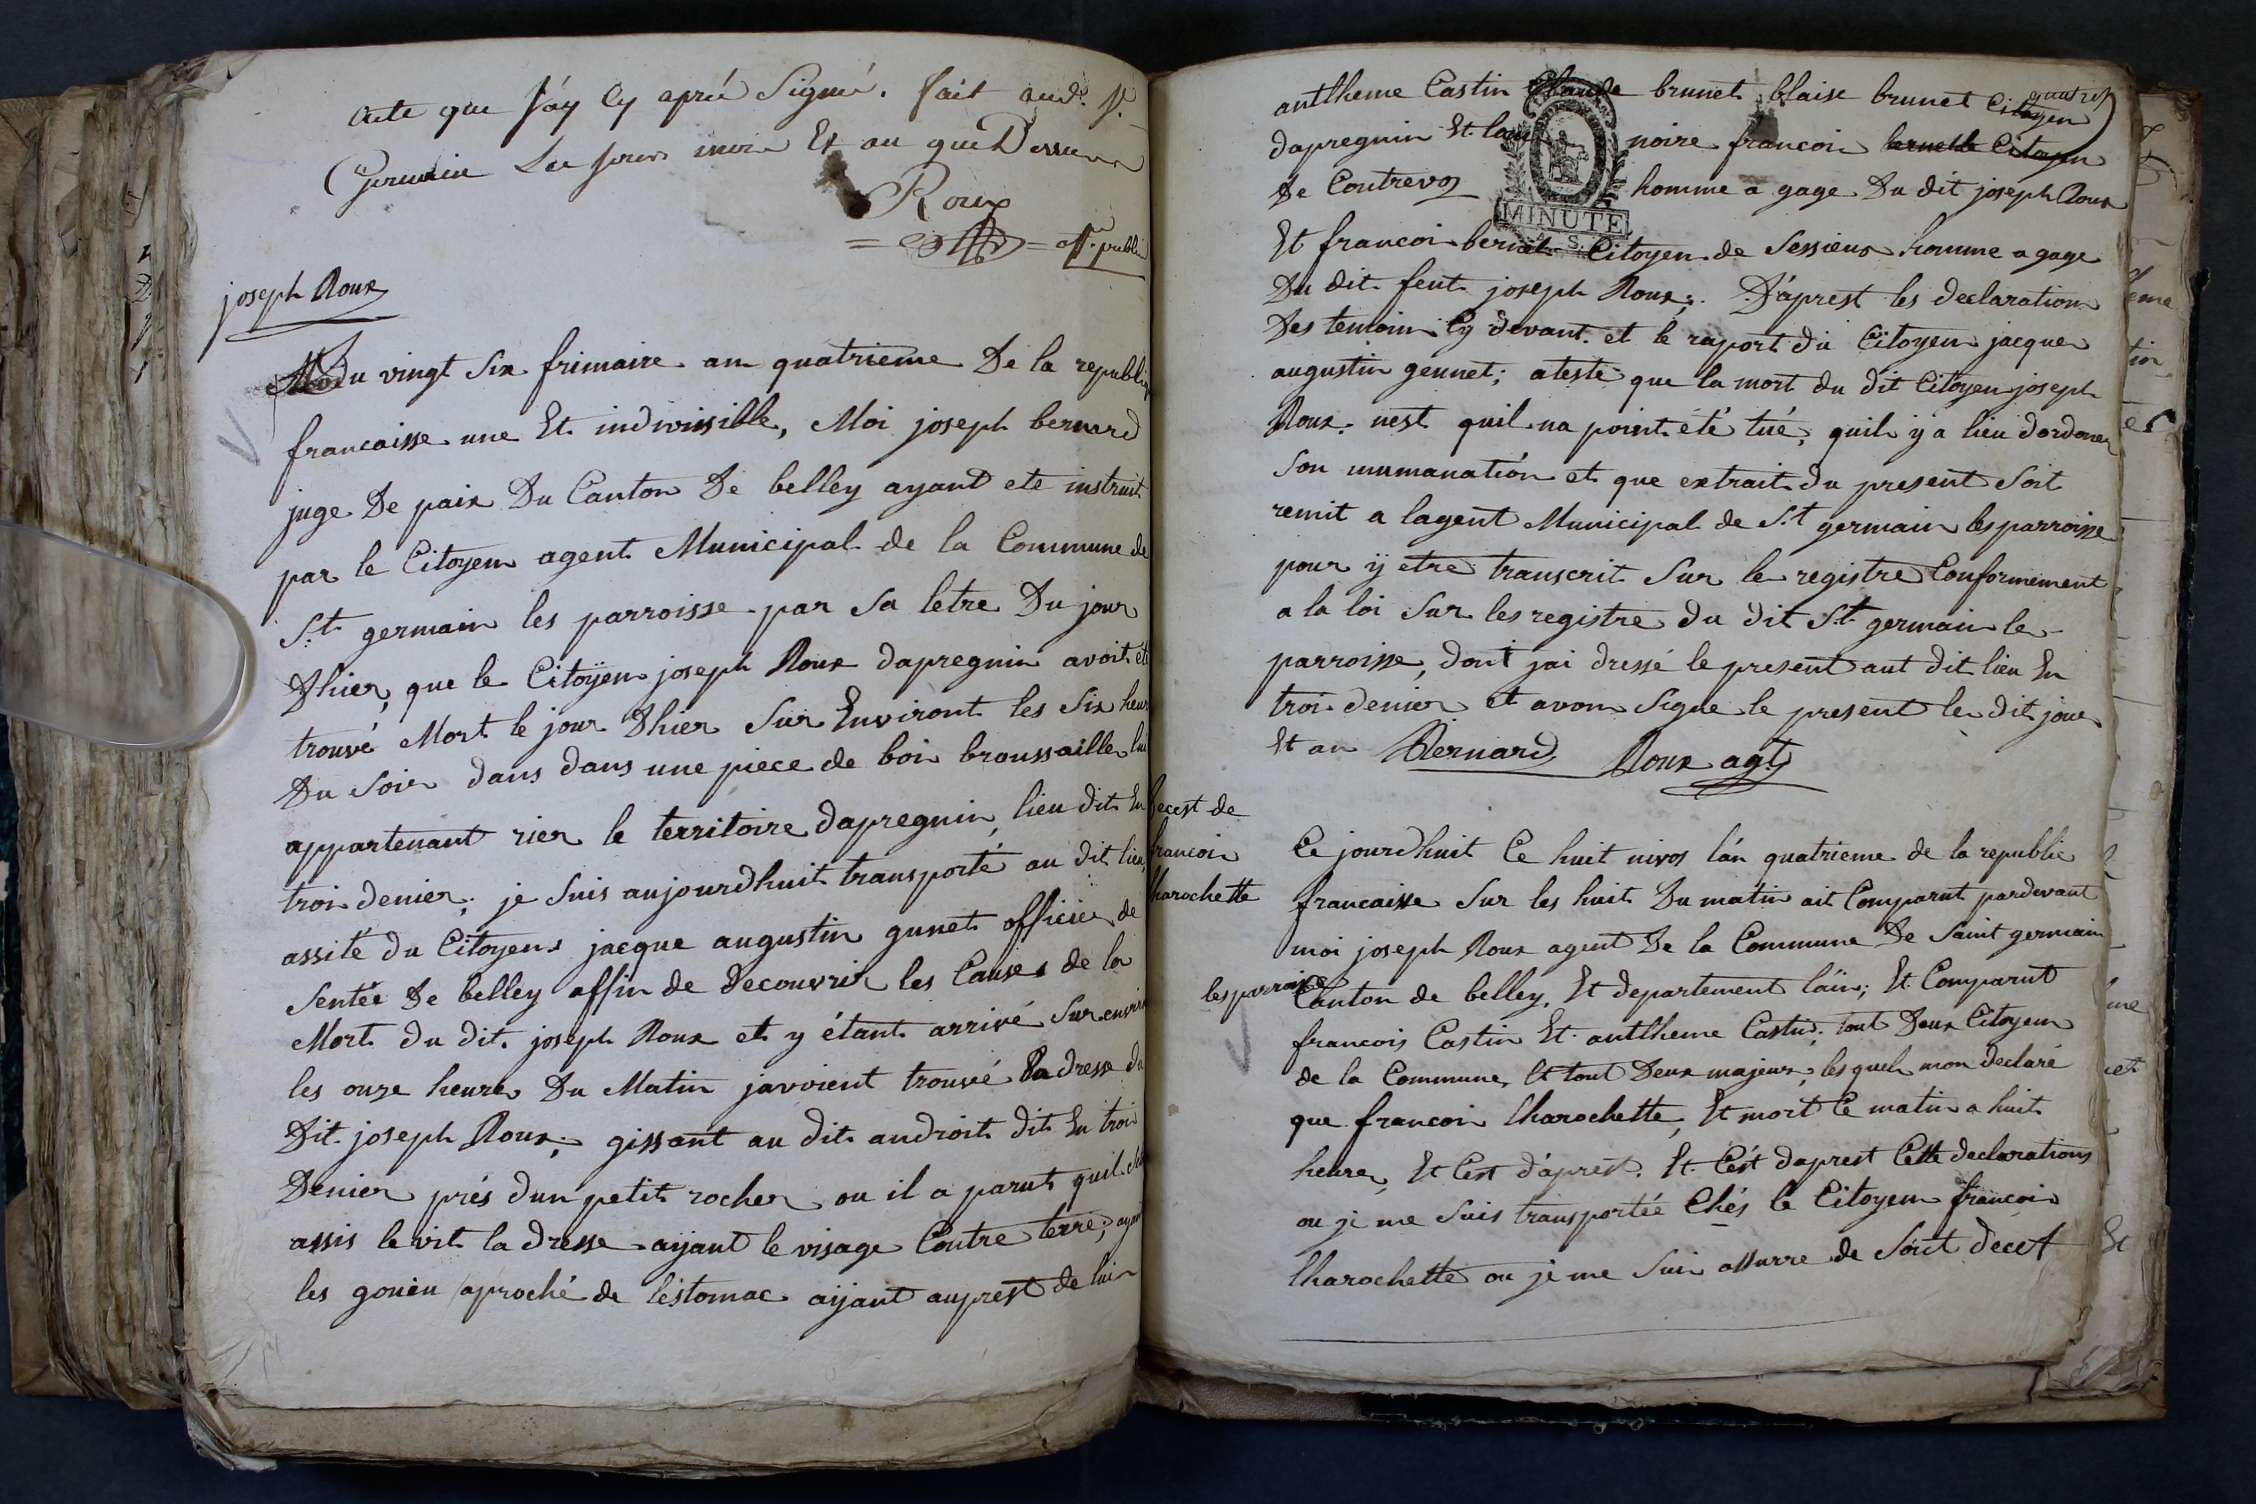 acte que J'ay Cy aprés Signé. fait aud.t S.t
Germain Les jour mois Et an que Dessus
Roux
off.er public
joseph Roux
Du vingt Six frimaire an quatrieme De la republiq
francaisse une Et indivissible, Moi joseph bernard
juge De paix Du Canton De belley ayant ete instruit
par le Citoyen agent Municipal de la Commune de
S.t germain les parroisse par Sa letre Du jour
Dhier, que le Citoÿen joseph Roux dapregnin avoit été
trouvé Mort le jour Dhier Sur Environt les Six heur
Du Soir dans dans une piece de bois broussailles lui
appartenant rier le territoire dapregnin, lieu dit En
trois denier; je Suis aujourdhuit transporté au dit lieu,
assité du Citoyens jacque augustin gunet officier de
Sentée De belley affin de Decouvrir les Causes de la
Mort du dit. joseph Roux et y étant arrivé Sur environ
les onze heures Du Matin javoient trouvé la dresse du
Dit joseph Roux; gissant au dit androit dit En trois
Denier prés dun petit rocher ou il a parut quil
assis le vit la dresse aÿant le visage Contre terre, ayant
les gouèu aproché de léstomac aÿant auprest de luis
antlheme Castin Claude brunet blaise brunet Citoyen
dapregnin Et noire francois Citoyen
De Contrevoz homme a gage Du dit joseph Roux
Et francois bernet Citoyen de Sessieux homme a gage
Du dit feut joseph Roux; D'áprest les declaration
Des temoin Cy devant et le raport du Citoyen jacques
augustin gennet; atesté que la mort du dit Citoyen joseph
Roux nest quil na point été tué, quil y a lieu dordonner
Son innumanatión et que extrait du present Soit
remit a lagent Municipal de S.t germain les parroisse
pour ÿ etre transcrit Sur le registre Conformement
a la loi Sur les registre du dit S.t germain les
parroisse, dont jai dressé le present aut dit lieu En
trois denier et avons Signe le present les dit jour
Et an Bernard Roux agt
decest de
francois
lharochette
Ce jourdhuit Ce huit nivos lán quatrieme de la republic
francaisse Sur les huit Du matin ait Comparut pardevant
moi joseph Roux agent De la Commune De Saint germain
les parroisse
Canton de belley, Et departement laïn; Et Comparut
francois Castin Et antlheme Castin; tout Deux Citoyens
de la Commune, Et tout Deux majeur, les quels mon declaré
que francois lharochette, Et mort Ce matin a huit
heures, Et C'est d'áprest. Et C'est daprest Cette declarations
ou je me Suis transportée Chés le Citoyen francois
lharochette ou je me Suis assurre de Sont decest